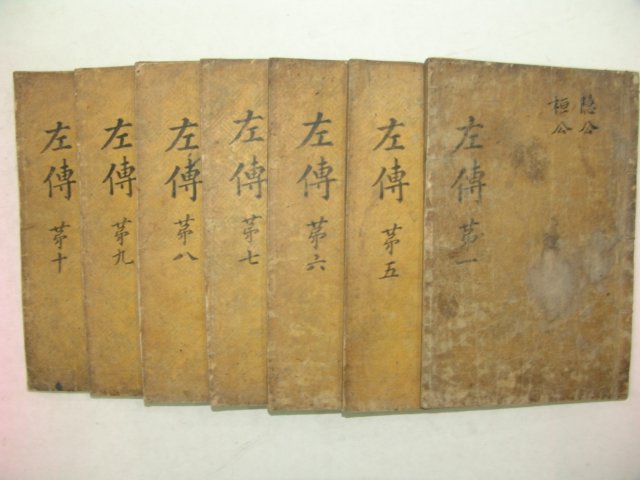 隱公
桓公
左傳 苐一
左傳 苐五
左傳 苐六
左傳 苐七
左傳 苐八
左傳 苐九
左傳 苐十